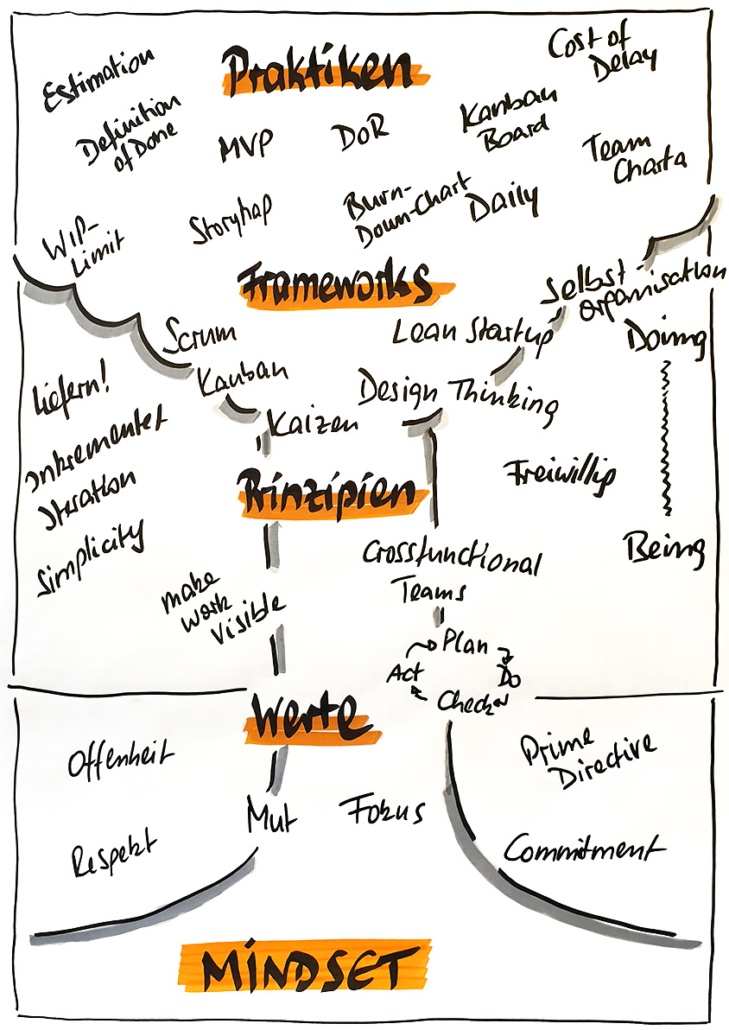 Praktiken
Cost of
Delay
Estimation
Definition
of Done
MVP
DoR
Kanban
Board
Team
Charta
WIP-
Limit
StoryMap
Burn-
Down-Chart
Daily
Frameworks
Selbst-
organisation
Scrum
Lean Startup
Doing
Kanban
Design Thinking
Kaizen
Liefern!
Inkrementet
Iteration
Simplicity
Prinzipien
Freiwillig
Being
Crossfunctional
Teams
make
work
visible
Plan
Act
Do
Check
Werte
Offenheit
Prime
Directive
Mut
Fokus
Respekt
Commitment
MINDSET